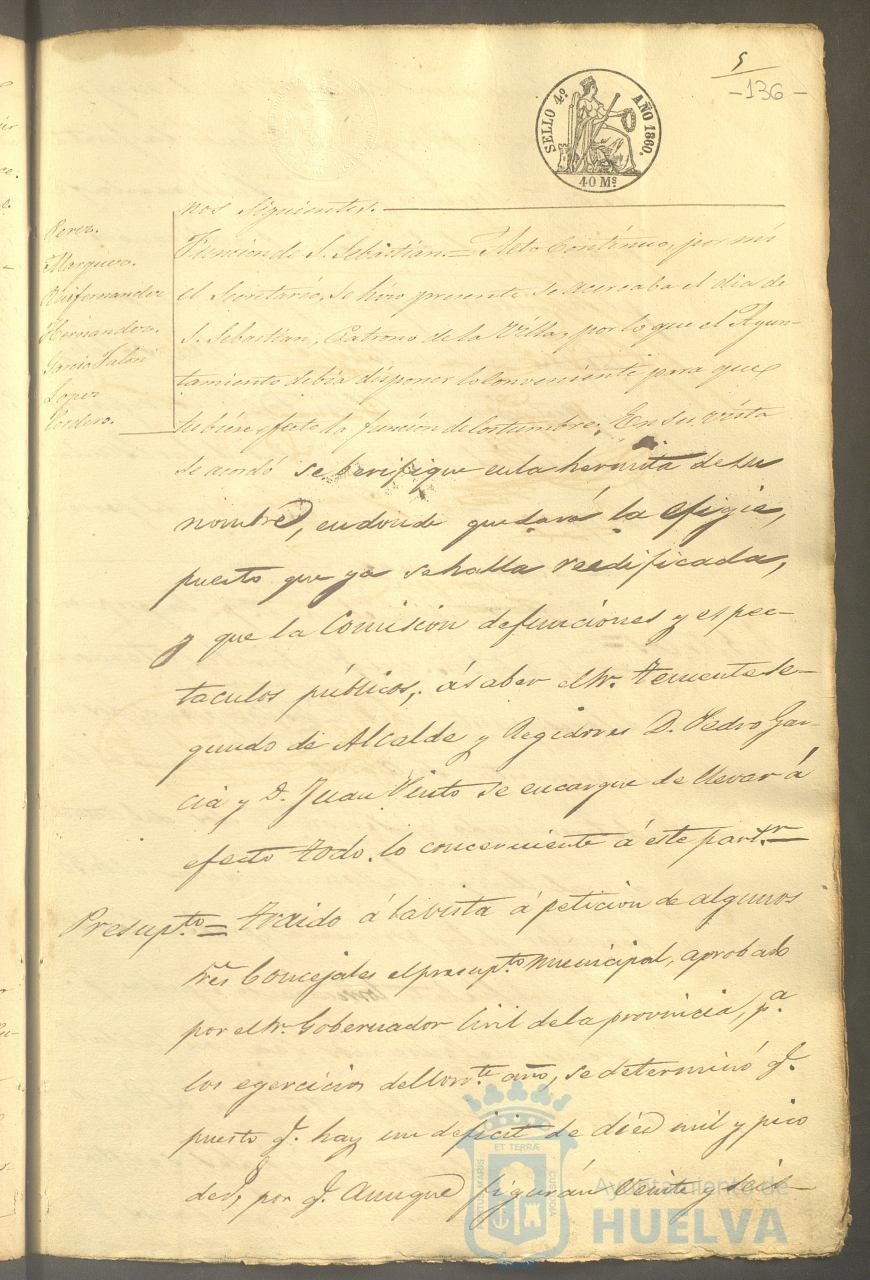 5
-136-
SELLO 4º AÑO 1860.
40 Ms
nos siguientes.
Perez.
Marquez.
Hernandez.
Garcia
Lopez
Cordero.
Funcion de S. Sebastian.= Acto Contínuo, por mi
el Secretario, se hizo presente se acercaba el dia de
S. Sebastian, Patrono de la Villa, por lo que el Ayun-
tamiento debia disponer lo conveniente para que
tubiere efecto la funcion de costumbre. En su vista
se acordó se berifique en la hermita de su
nombre, en donde quedará la efigie,
puesto que ya se halla reedificada,
y que la Comision de funciones y espec-
taculos públicos, á saber el Sr. Teniente se-
gundo de Alcalde y Regidores D. Pedro Gar-
cia y D. Juan Pinto se encargue de llevar á
efecto todo lo concerniente á este partr
Presupto= Traido á la vista á peticion de algunos
Sres Concejales el presupto municipal, aprobado
por el Sr. Gobernador Civil de la provincia, pa.
los egercicios del corrte año, se determinó q.
puesto q. hay un deficit de diez mil y pico
de rs, por q. aunque figurán veinte y seis
ET TERRÆ
PORTUS MARIS
CUSTODIA
Ayuntamiento de
HUELVA